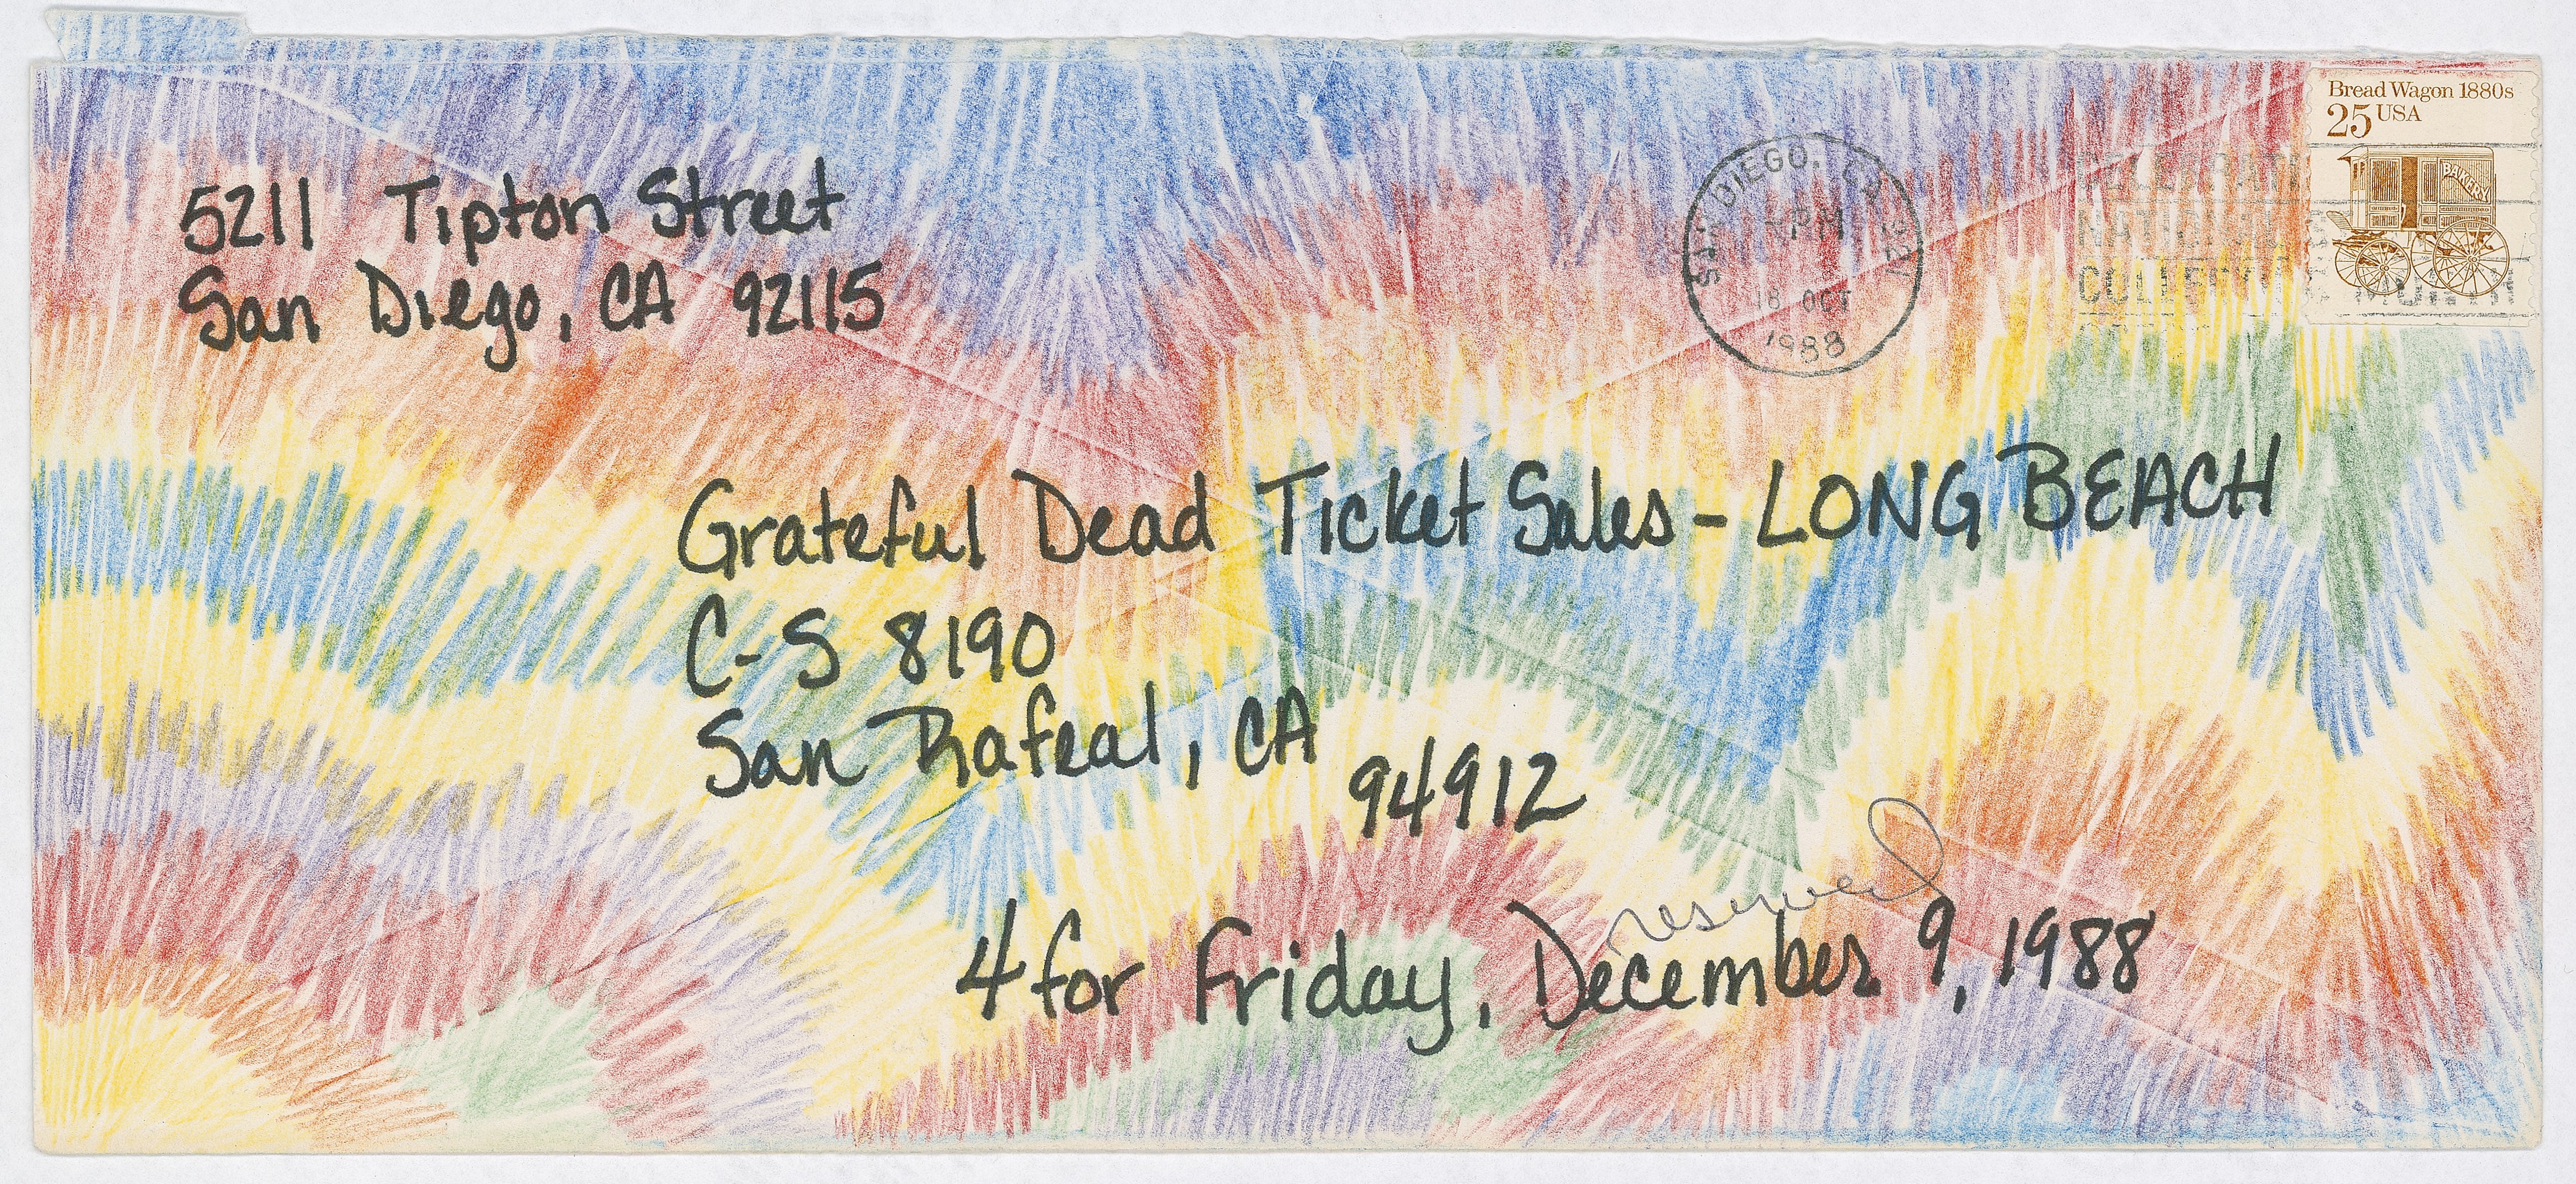 Bread Wagon 1880s
25 USA
BAKERY
5211 Tipton Street
San Diego, CA 92115
SAN DIEGO, CA 921
PM
18 OCT
1988
CELEBRATE
NATIONAL
COLLECTING MONTH
Grateful Dead Ticket Sales - LONG BEACH
C-S 8190
San Rafeal, CA
94912
reserved
4 for Friday, December 9, 1988